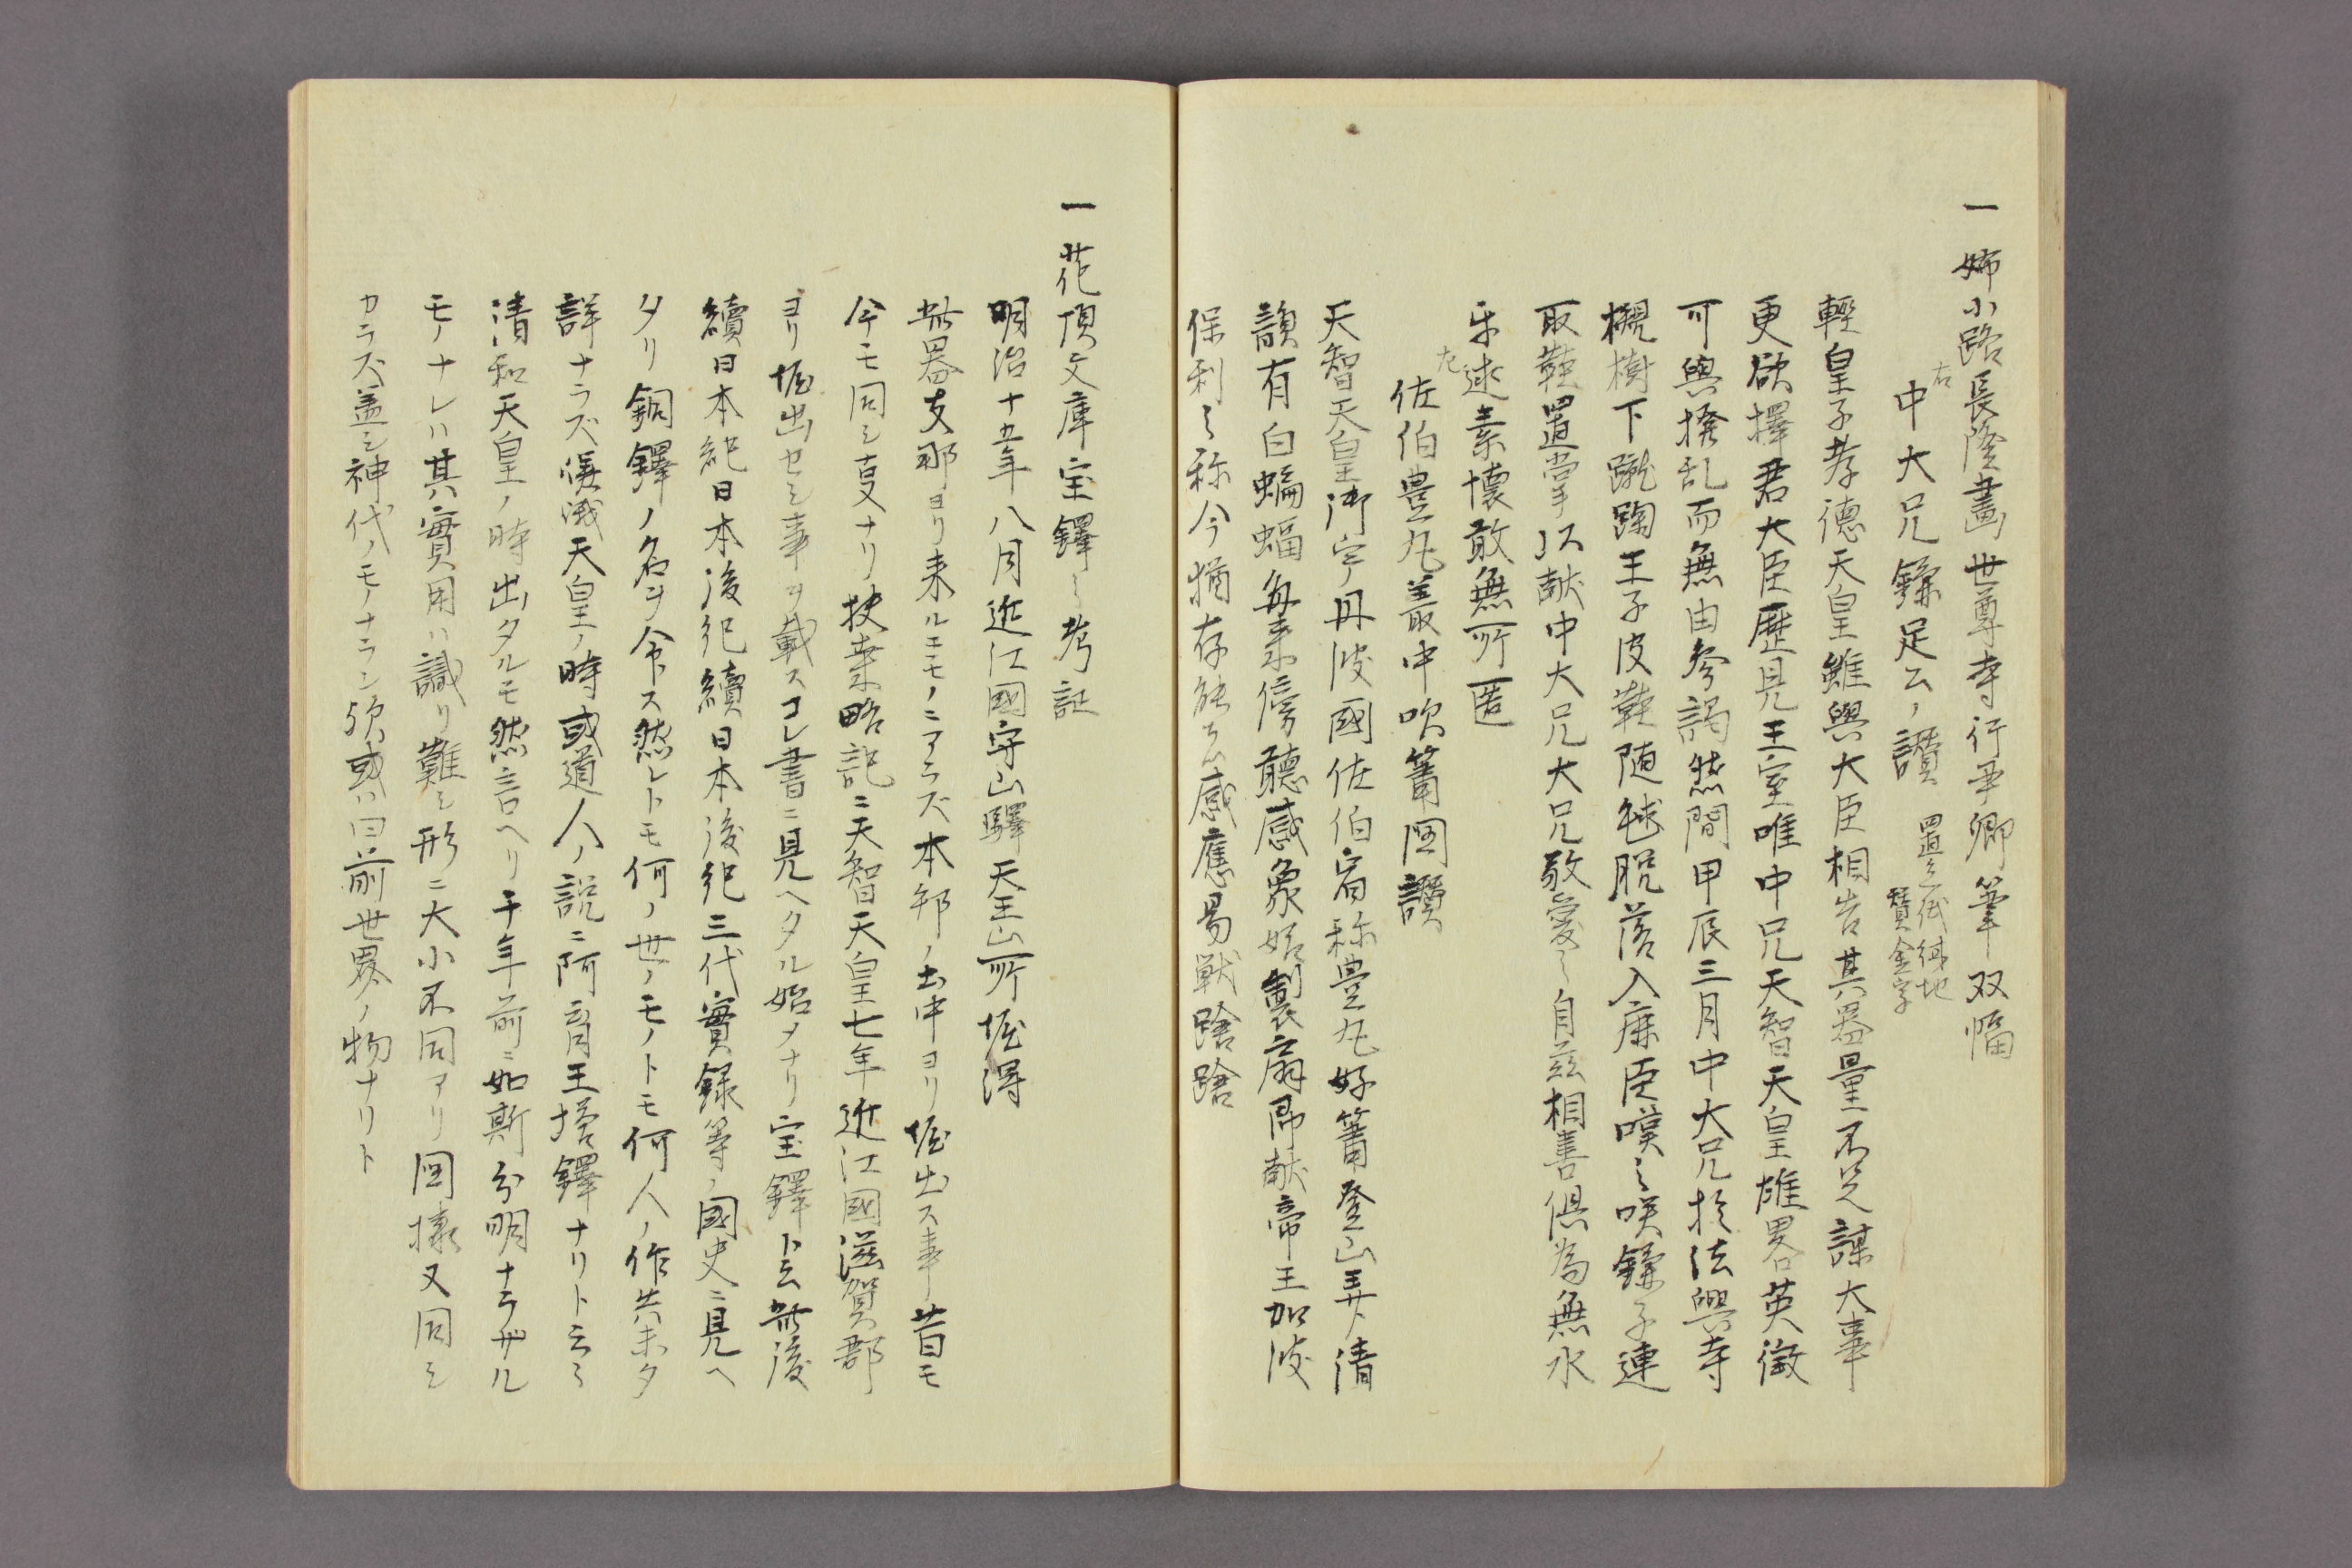 一 姉小路長隆畫 世尊寺行尹卿筆 双幅
右
中大兄鎌足公ノ讃 置之紙紺地
賛金字
輕皇子孝徳天皇雖與大臣相岩其器量不足謀大事
更欲擇君大臣歴見王室唯中兄天智天皇雄畧英徹
可與撥乱而無由参謁然間甲辰三月中大兄於法興寺
槻樹下蹴踘王子皮鞋随毬脱落入庶臣嘆之咲鎌子連
取鞋置掌以献中大兄大兄敬愛之自茲相善倶為無水
乎逑素懐敢無所匿
左
佐伯豊丸叢中吹簫図讃
天智天皇御宇丹波國佐伯宿称豊丸好簫登山弄清
韻有白蝙蝠毎来傍聽感象始製扇即献帝王加波
保利之称今猶存能亦感應易獣蹌蹌
一 花頂文庫宝鐸之考証
明治十五年八月近江國守山驛天王山所堀得
此器支那ヨリ来ルモモノニアラズ本邦ノ土中ヨリ堀出ス事昔モ
今モ同シ叓ナリ扶桒略記ニ天智天皇七年近江國滋賀郡
ヨリ堀出セシ事ヲ載スコレ書ニ見ヘタル始メナリ宝鐸ト云此後
續日本紀日本後紀續日本後紀三代實録等ノ國史ニ見ヘ
タリ銅鐸ノ名ヲ命ス然レトモ何ノ世ノモノトモ何人ノ作共未タ
詳ナラズ嵯峨天皇ノ時或道人ノ説ニ阿育王塔鐸ナリト云々
清和天皇ノ時出タルモ然言ヘリ千年前ニ如斯分明ナラザル
モノナレハ其實用ハ識リ難シ形ニ大小不同アリ図様又同シ
カラズ盖シ神代ノモノナラン欤或ハ曰前世界ノ物ナリト